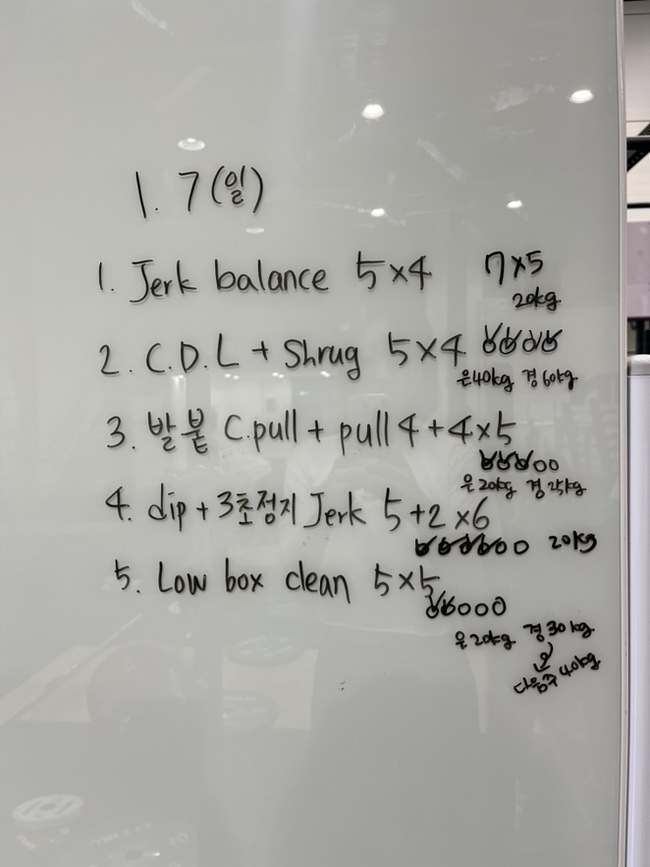 1. 7 (일)
1. Jerk balance 5×4 7×5
20kg
2. C.D.L + Shrug 5×4
은40kg 경60kg
3. 발붙 C.pull + pull 4+4×5
은20kg 경25kg
4. dip + 3초정지 Jerk 5+2 ×6
20kg
5. Low box clean 5×5
은20kg 경30kg
다음주 40kg